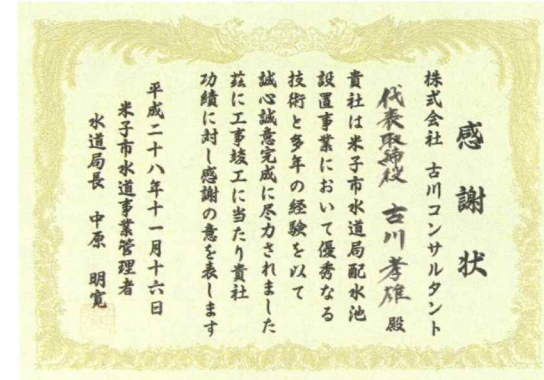 感謝状
株式会社 古川コンサルタント
代表取締役 古川孝雄 殿
貴社は米子市水道局配水池
設置事業において優秀なる
技術と多年の経験を以て
誠心誠意完成に尽力されました
茲に工事竣工に当たり貴社
功績に対し感謝の意を表します
平成二十八年十一月十六日
米子市水道事業管理者
水道局長 中原 明寛